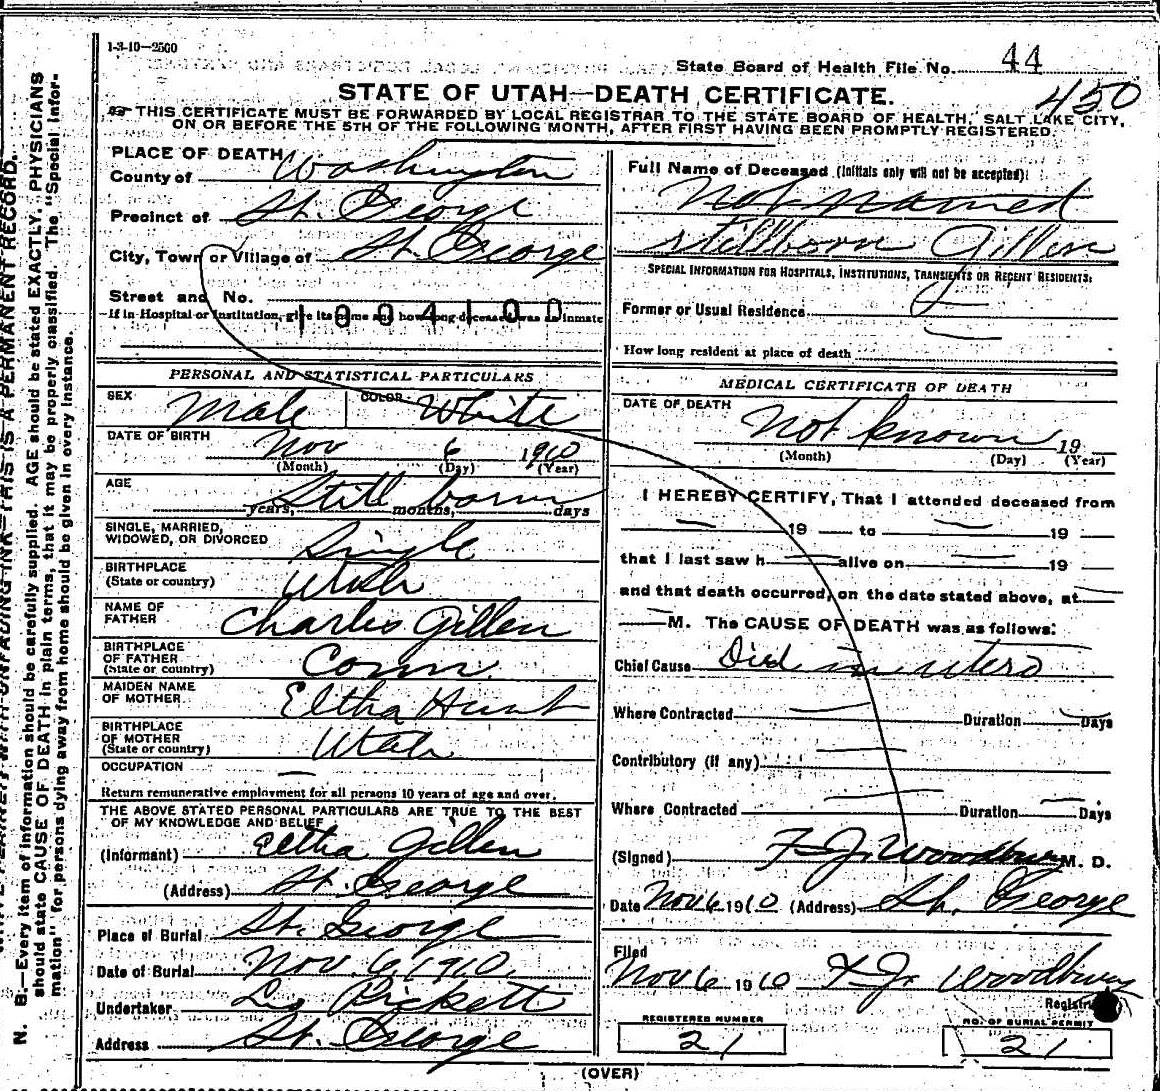 1-3-10—2500
State Board of Health File No. 44
450
STATE OF UTAH—DEATH CERTIFICATE.
THIS CERTIFICATE MUST BE FORWARDED BY LOCAL REGISTRAR TO THE STATE BOARD OF HEALTH, SALT LAKE CITY,
ON OR BEFORE THE 5TH OF THE FOLLOWING MONTH, AFTER FIRST HAVING BEEN PROMPTLY REGISTERED.
PLACE OF DEATH
County of Washington
Precinct of St. George
City, Town or Village of St. George
Street and No.
If in Hospital or Institution, give its name and how long deceased was an inmate
1004100
PERSONAL AND STATISTICAL PARTICULARS
SEX Male COLOR White
DATE OF BIRTH Nov 6 1910
(Month) (Day) (Year)
AGE Still born
years, months, days
SINGLE, MARRIED,
WIDOWED, OR DIVORCED Single
BIRTHPLACE
(State or country) Utah
NAME OF
FATHER Charles Gillen
BIRTHPLACE
OF FATHER
(State or country) Conn.
MAIDEN NAME
OF MOTHER Eltha Hunt
BIRTHPLACE
OF MOTHER
(State or country) Utah
OCCUPATION —
Return remunerative employment for all persons 10 years of age and over.
THE ABOVE STATED PERSONAL PARTICULARS ARE TRUE TO THE BEST
OF MY KNOWLEDGE AND BELIEF
(Informant) Eltha Gillen
(Address) St. George
Place of Burial St. George
Date of Burial Nov. 6, 1910.
Undertaker Pickett
Address St. George
Full Name of Deceased (Initials only will not be accepted):
Not Named
Stillborn Gillen
SPECIAL INFORMATION FOR HOSPITALS, INSTITUTIONS, TRANSIENTS OR RECENT RESIDENTS:
Former or Usual Residence
How long resident at place of death
MEDICAL CERTIFICATE OF DEATH
DATE OF DEATH
Not known 19
(Month) (Day) (Year)
I HEREBY CERTIFY, That I attended deceased from
— 19 — to — 19
that I last saw h — alive on — 19
and that death occurred, on the date stated above, at —
— M. The CAUSE OF DEATH was as follows:
Chief Cause Died in utero
Where Contracted — Duration — Days
Contributory (if any) —
Where Contracted — Duration — Days
(Signed) F. J. Woodbury M. D.
Date Nov 6 1910 (Address) St. George
Filed
Nov 6 1910 F. J. Woodbury
Registrar
REGISTERED NUMBER
21
NO. OF BURIAL PERMIT
21
(OVER)
N. B.—Every item of information should be carefully supplied. AGE should be stated EXACTLY. PHYSICIANS
should state CAUSE OF DEATH in plain terms, that it may be properly classified. The "Special Infor-
mation" for persons dying away from home should be given in every instance.
WITH UNFADING INK—THIS IS A PERMANENT RECORD.